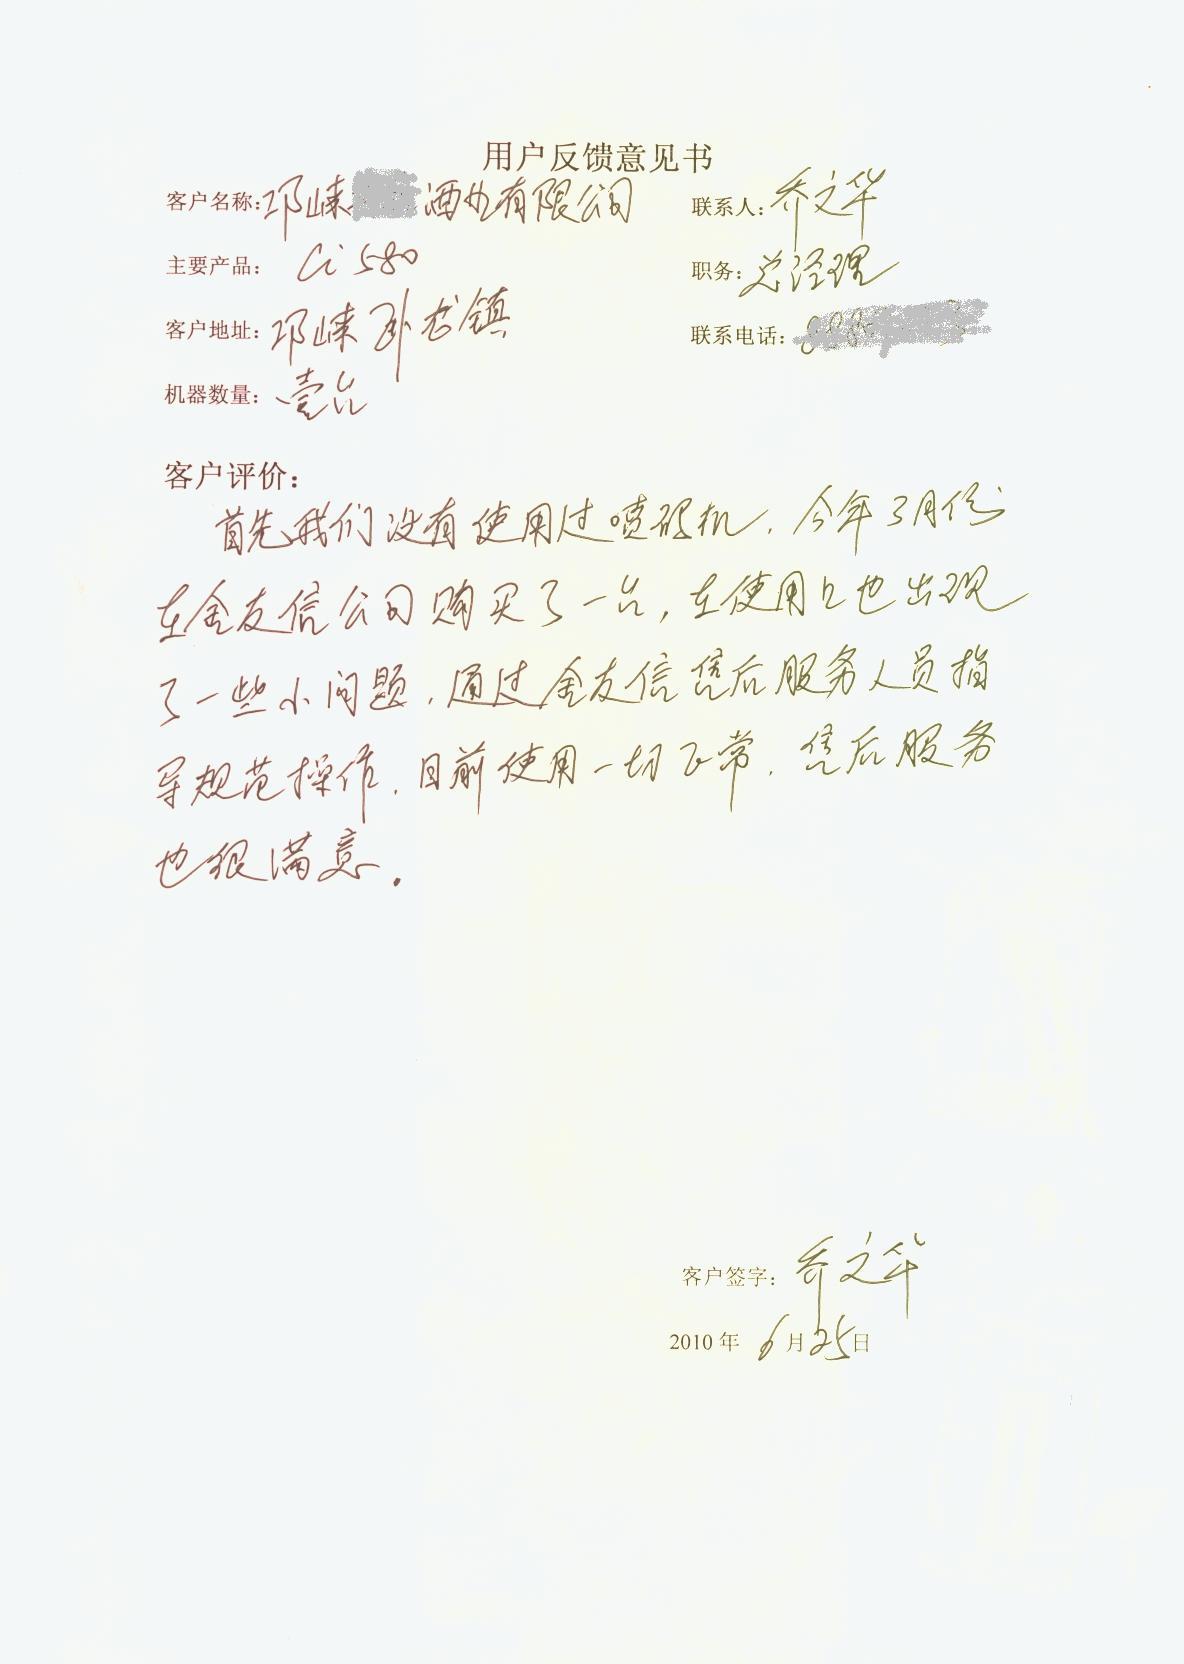 用户反馈意见书
客户名称:邛崃 酒业有限公司 联系人:乔文华
主要产品: Ci580 职务:总经理
客户地址:邛崃卧龙镇 联系电话:
机器数量:壹台
客户评价:
首先我们没有使用过喷码机,今年3月份
在金友信公司购买了一台,在使用中也出现
了一些小问题,通过金友信售后服务人员指
导规范操作,目前使用一切正常,售后服务
也很满意.
客户签字:乔文华
2010年6月25日